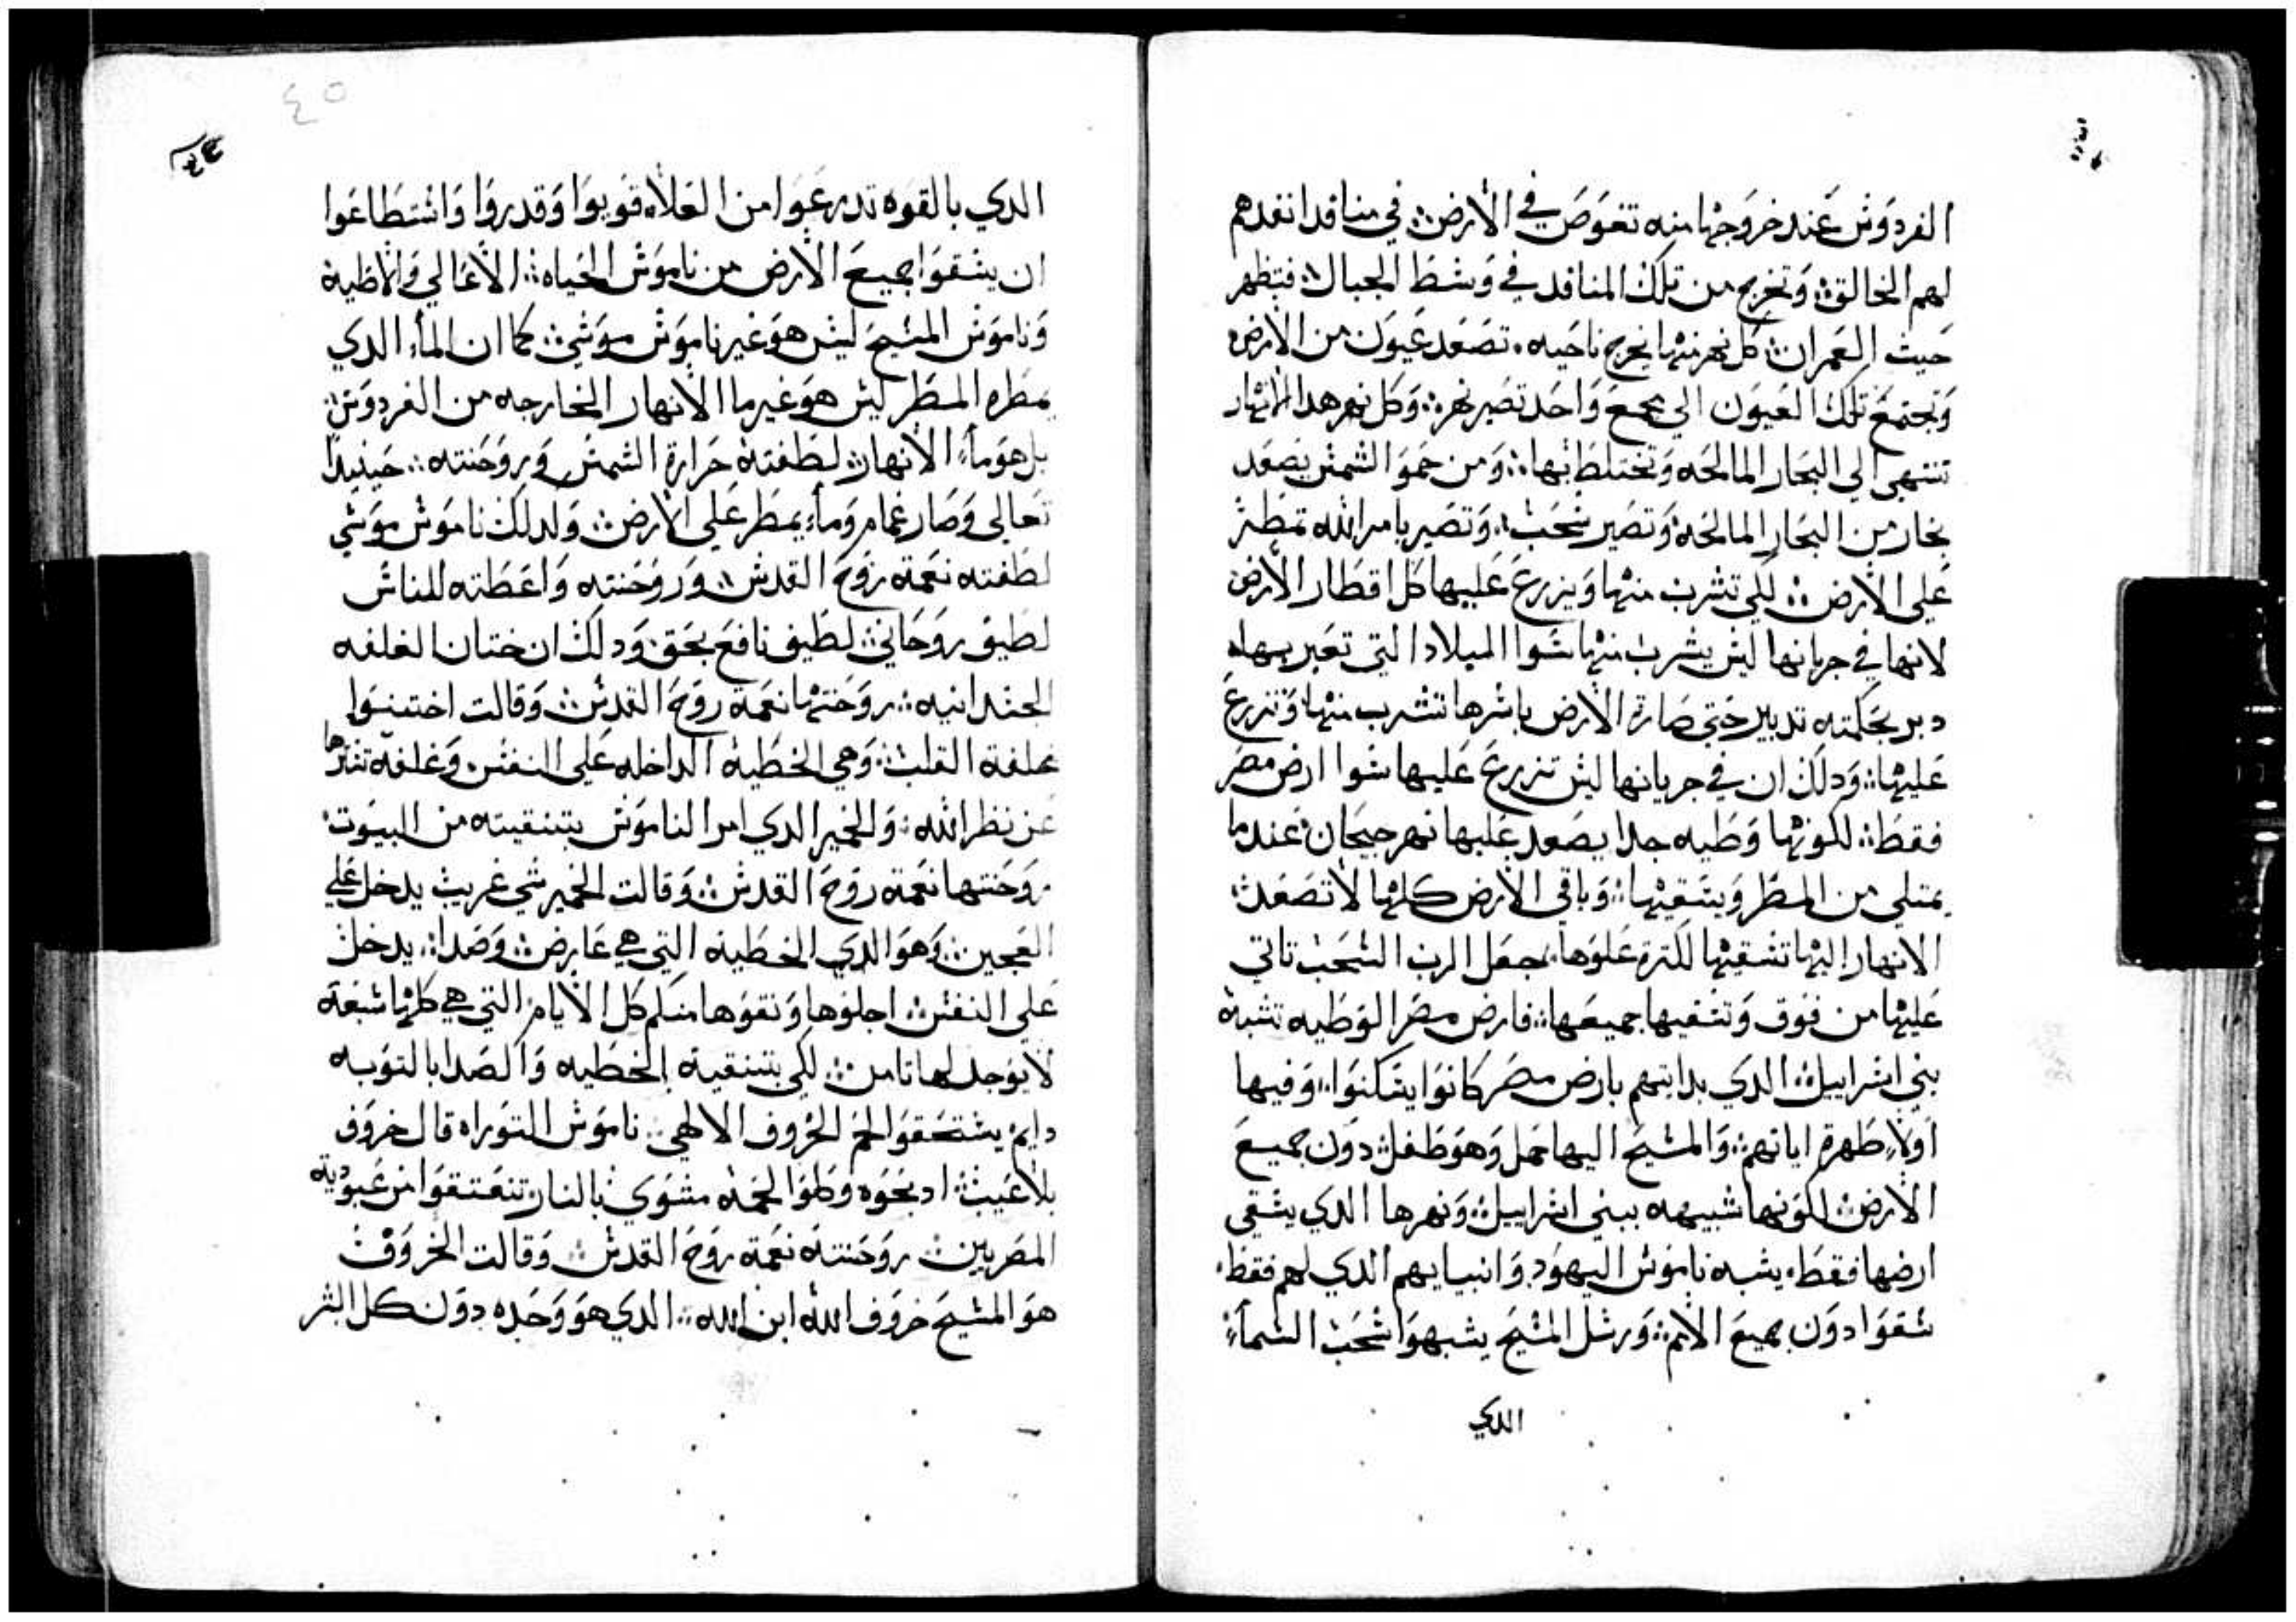 الفردوس عند خروجها منه تغوص في الأرض في منافد انفدهم
لهم الخالق وتخرج من تلك المنافد في وسط الجبال فتظهر
حيث العمران كل نهر منها يخرج ناحيه تصعد عيون من الأرض
وتجتمع تلك العيون الي مجمع واحد تصير نهر وكل نهر هدا الانهار
تنتهي الي البحار المالحه وتختلط بها ومن حمو الشمس يصعد
بخار من البحار المالحه وتصير سحب وتصير بامر الله تمطر
علي الأرض لكي تشرب منها ويزرع عليها كل اقطار الأرض
لانها في جريانها ليس يشرب منها سوا الميلاد التي تعبر بها
دبر بحكمته تدبير حتي صارة الأرض باسرها تشرب منها وتزرع
عليها ودلك ان في جريانها ليس تزرع عليها سوا ارض مصر
فقط لكونها وطيه جدا يصعد عليها نهر جيحان عندما
يمتلي من المطر ويسقيها وباقي الأرض كلها لا تصعد
الانهار اليها تسقيها لكترة علوها جعل الرب السحب تاتي
عليها من فوق وتسقيها جميعها فارض مصر الوطيه تشبه
بني اسراييل الدي بدايتهم بارض مصر كانوا يسكنوا وفيها
اولا ظهرة اياتهم والمسيح اليها حمل وهو طفل دون جميع
الأرض لكونها شبيهه ببني اسراييل ونهرها الدي يسقي
ارضها فقط يشبه ناموس اليهود وانبيايهم الدي لهم فقط
سقوا دون جميع الأمم ورسل المسيح يشبهوا سحب السماء
الدي
٤٥
الدي بالقوه تدرعوا من العلاء قويوا وقدروا واستطاعوا
ان يسقوا جميع الأرض من ناموس الحياه الأعالي والاطيه
وناموس المسيح ليس هو غير ناموس موسي كما ان الماء الدي
يمطره المطر ليس هو غير ما الانهار الخارجه من الفردوس
بل هو ماء الانهار لطفته حرارة الشمس وروحنته حينيدا
تعالي وصار غمام وماء يمطر علي الأرض ولدلك ناموس موسي
لطفته نعمة روح القدس وروحنته واعطته للناس
لطيف روحاني لطيف نافع بحق ودلك ان ختان الغلفه
الجسدانيه روحنتها نعمة روح القدس وقالت اختتنوا
غلفة القلب وهي الخطيه الداخله علي النفس وغلفه تسترها
عن نظر الله والخمير الدي امر الناموس بتنقيته من البيوت
روحنتها نعمة روح القدس وقالت الخمير شي غريب يدخل علي
العجين وهو الدي الخطيه التي هي عارض وصدا يدخل
علي النفس اجلوها ونقوها منكم كل الأيام التي هي كلها سبعة
لا يوجد لها تامن لكي بتنقية الخطيه والصدا بالتوبه
دايم يستحقوا لحم الخروف الالهي ناموس التوراه قال خروف
بلا عيب ادبحوه وكلوا لحمه مشوي بالنار تنعتقوا من عبودية
المصريين روحنته نعمة روح القدس وقالت الخروف
هو المسيح خروف الله ابن الله الدي هو وحده دون كل البشر